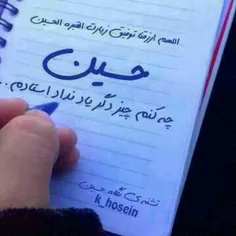 اللهم ارزقنا توفیق زیارت القبره الحسین
حسین
چه کنم چیز دگر یاد نداد استادم ...
تشنه ی نگاه حسین
k_hosein